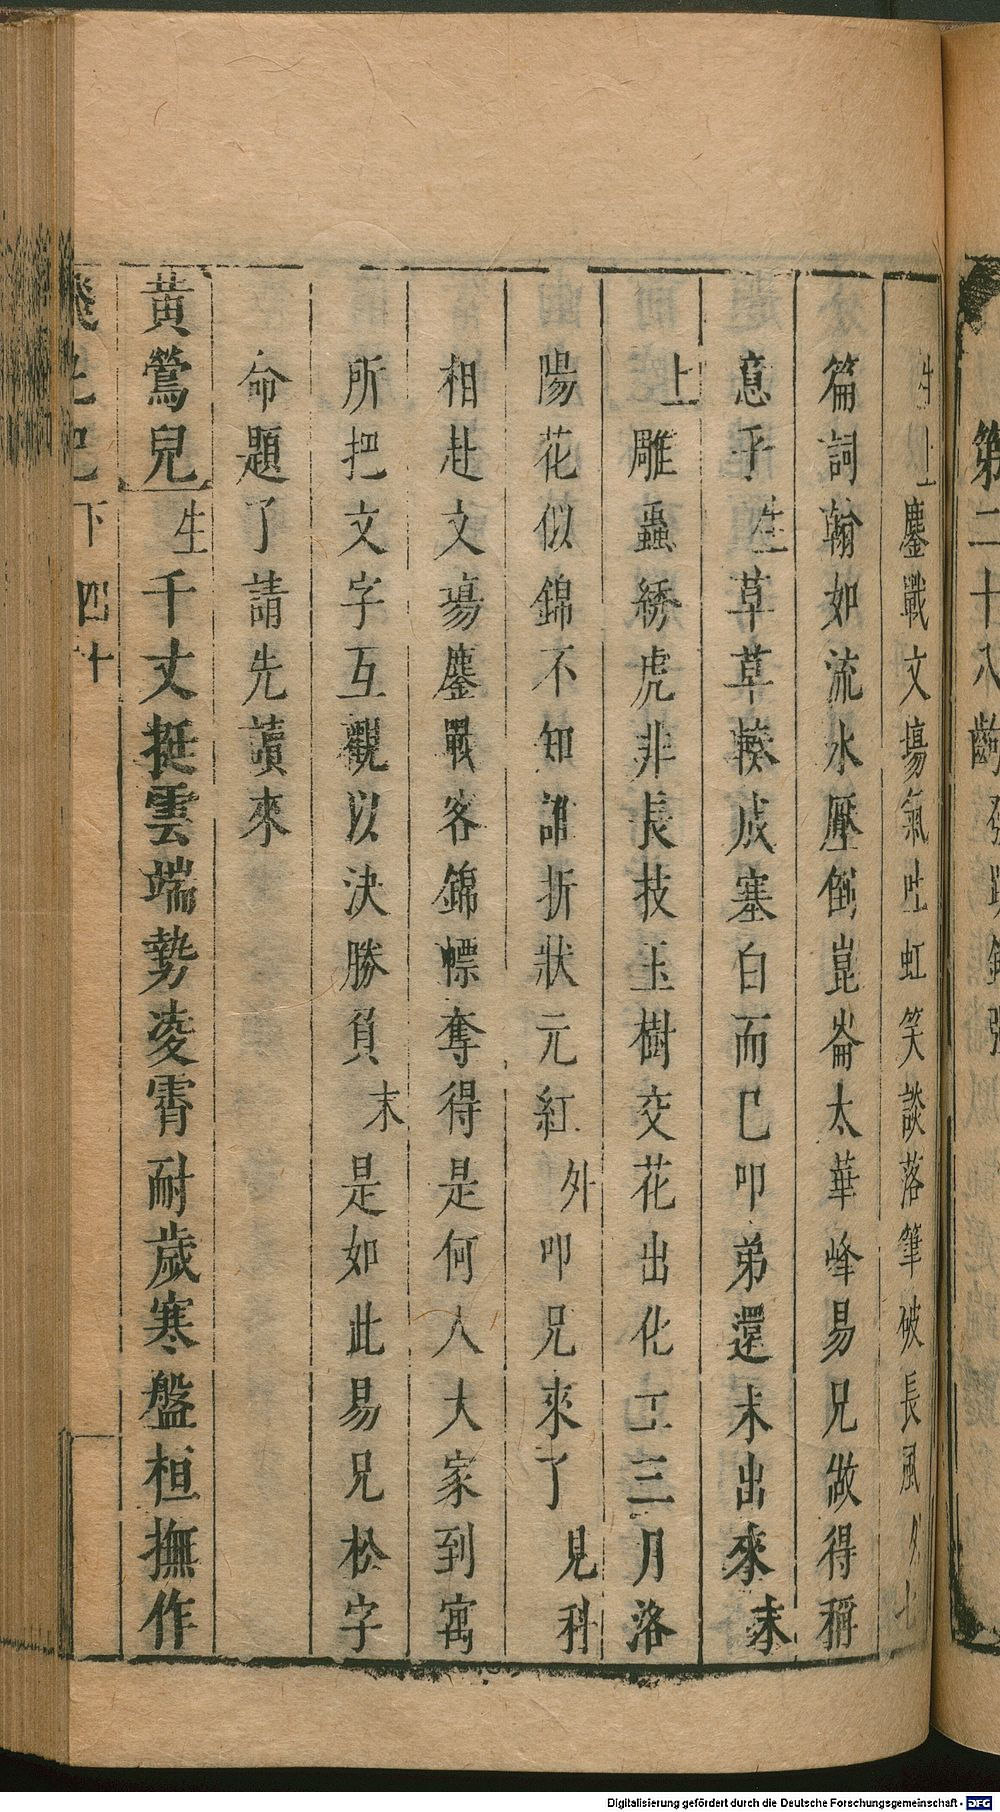 第二十八齣
生上鏖戰文場氣吐虹笑談落筆破長風外上
篇詞翰如流水壓倒崑崙太華峰易兄做得稱
意乎生草草輳成塞白而已叩弟還未出來末
上雕蟲綉虎非長技玉樹交花出化工三月洛
陽花似錦不知誰折狀元紅外叩兄來了見科
相赴文場鏖戰客錦標奪得是何人大家到寓
所把文字互觀以決勝負末是如此易兄松字
命題了請先讀來
黃鶯兒生千丈挺雲端勢凌霄耐歲寒盤桓撫作
下 四十
Digitalisierung gefördert durch die Deutsche Forschungsgemeinschaft - DFG